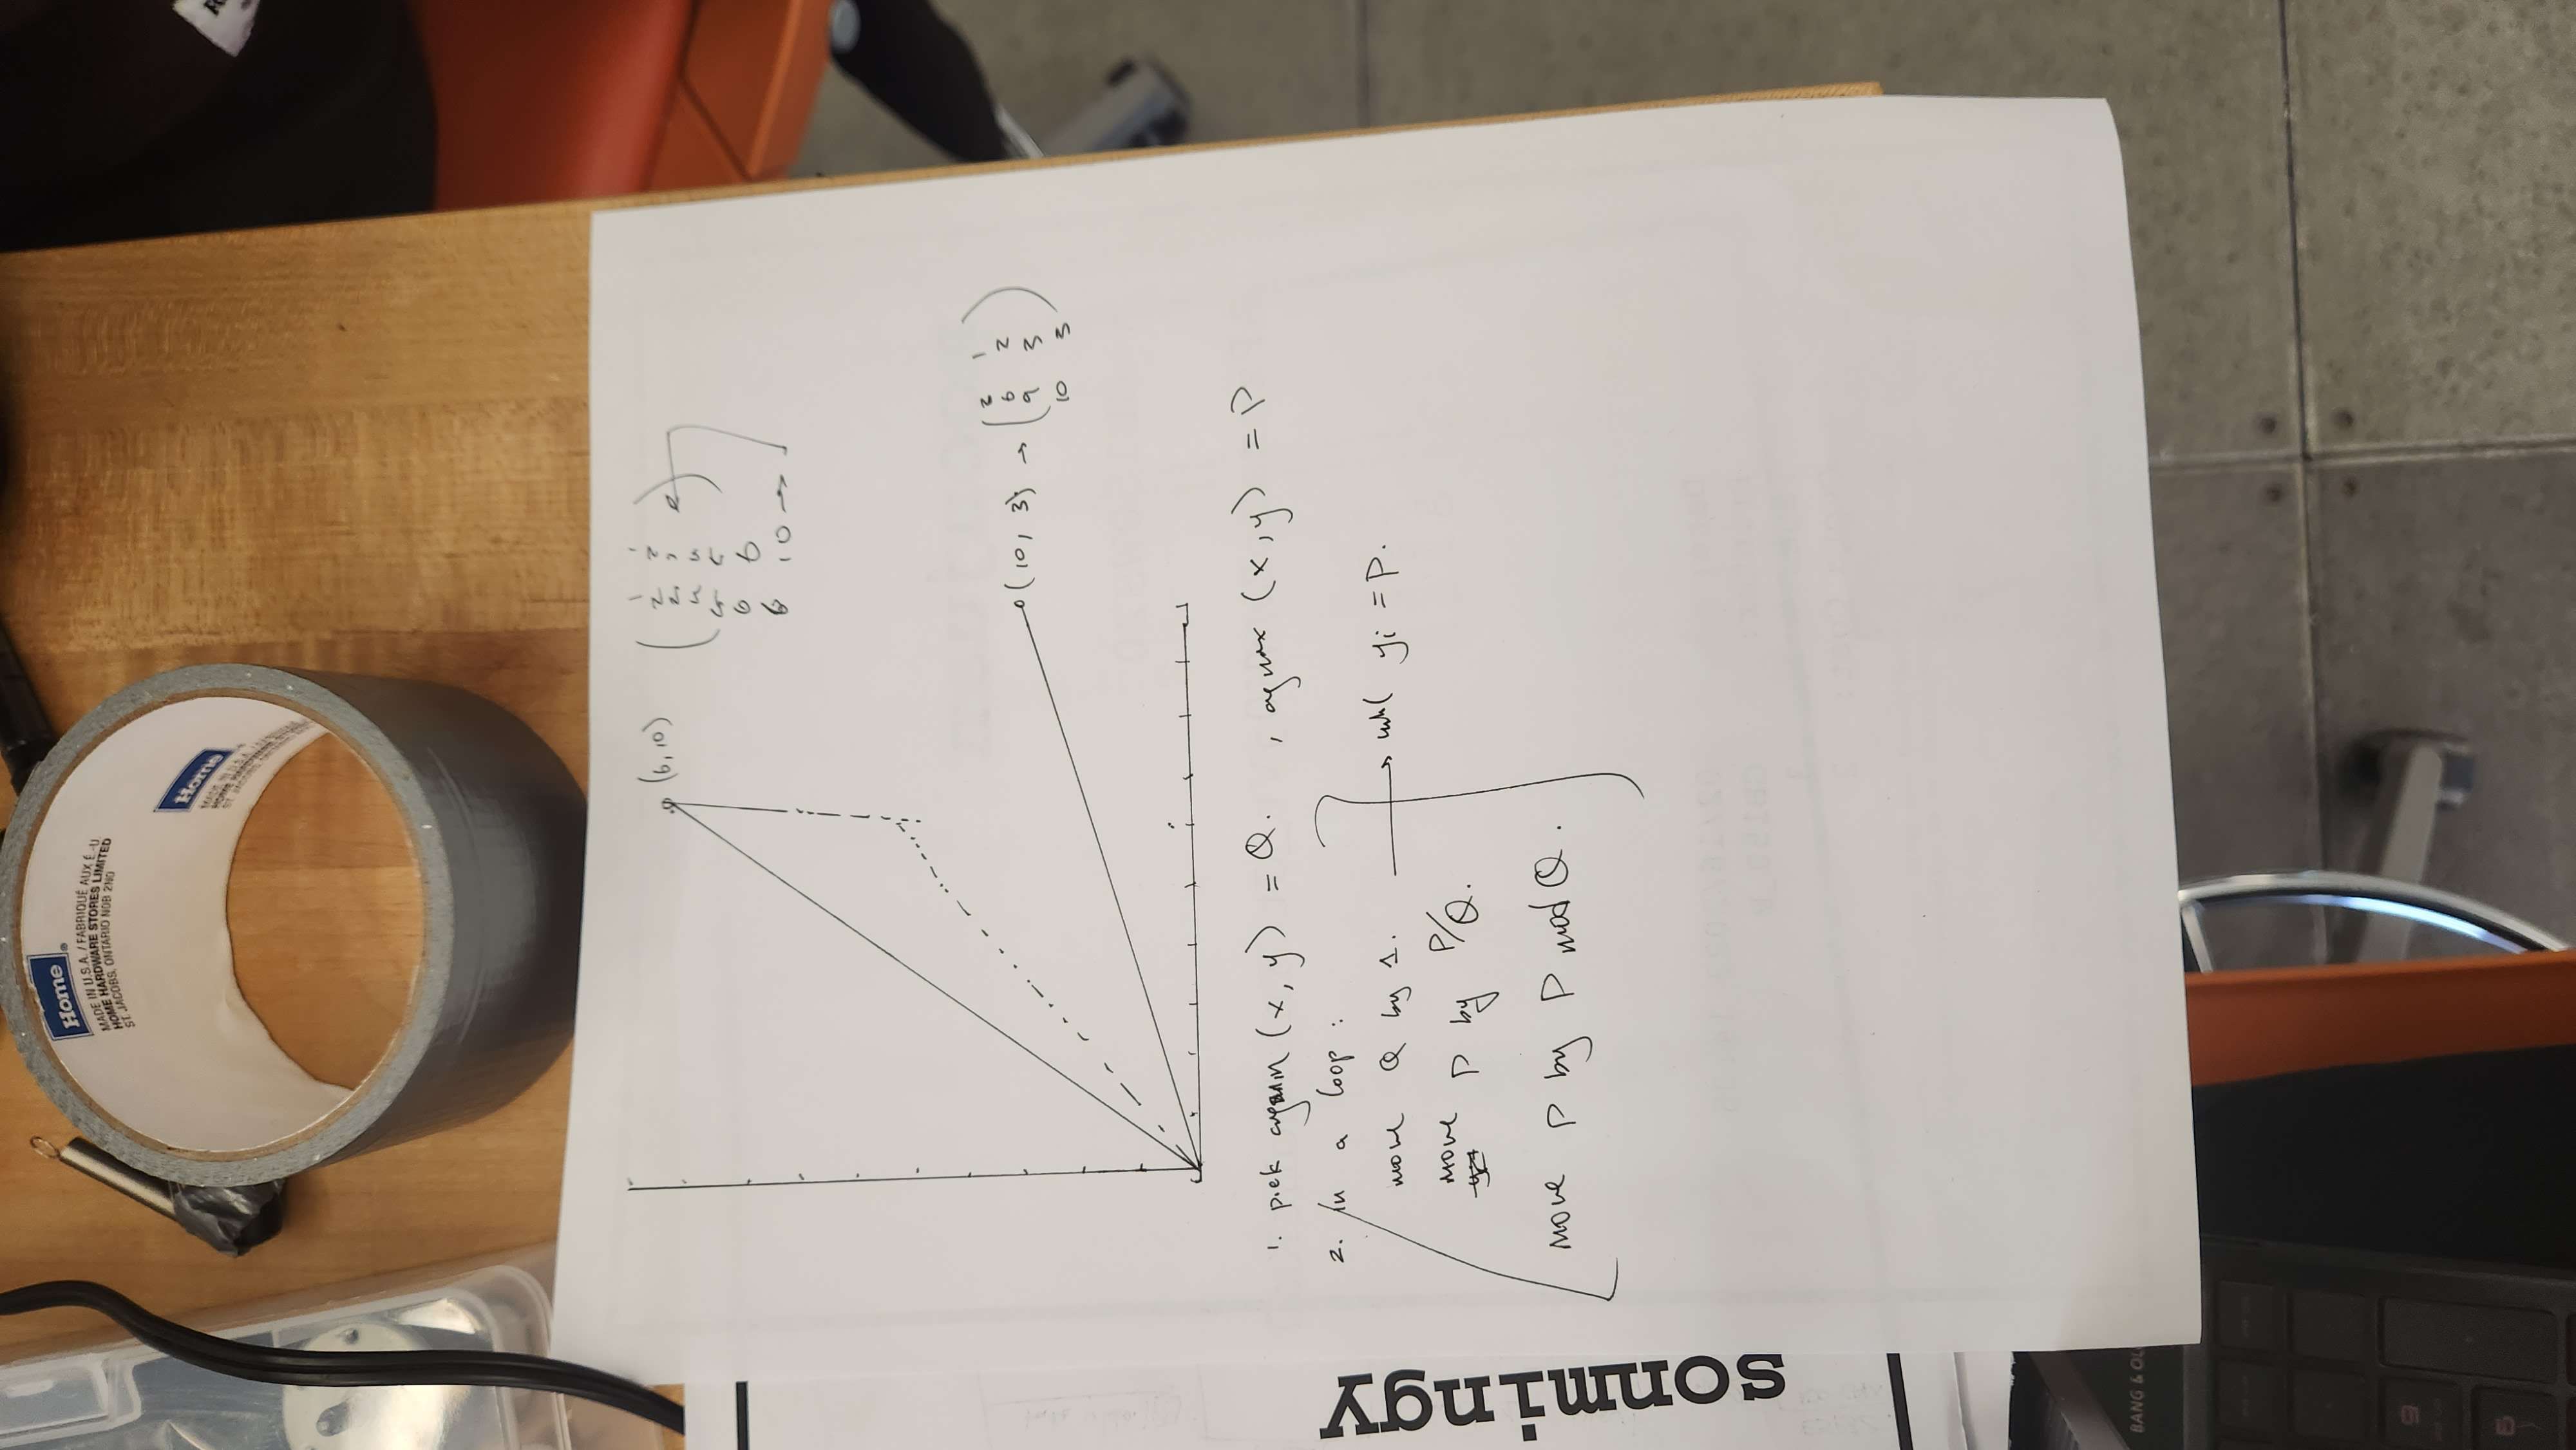 (6,10)
(10, 3) →
2 1
6 2
9 3
10 3
6 6
8 10 →
1. pick argmin (x, y) = Q. , argmax (x, y) = P
2. in a loop:
move Q by 1. → until yi = P.
move P by P/Q.
move P by P mod Q.
Home
MADE IN U.S.A. / FABRIQUÉ AUX É.-U.
HOME HARDWARE STORES LIMITED
ST. JACOBS, ONTARIO N0B 2N0
Home
sonmingy
BANG & OL